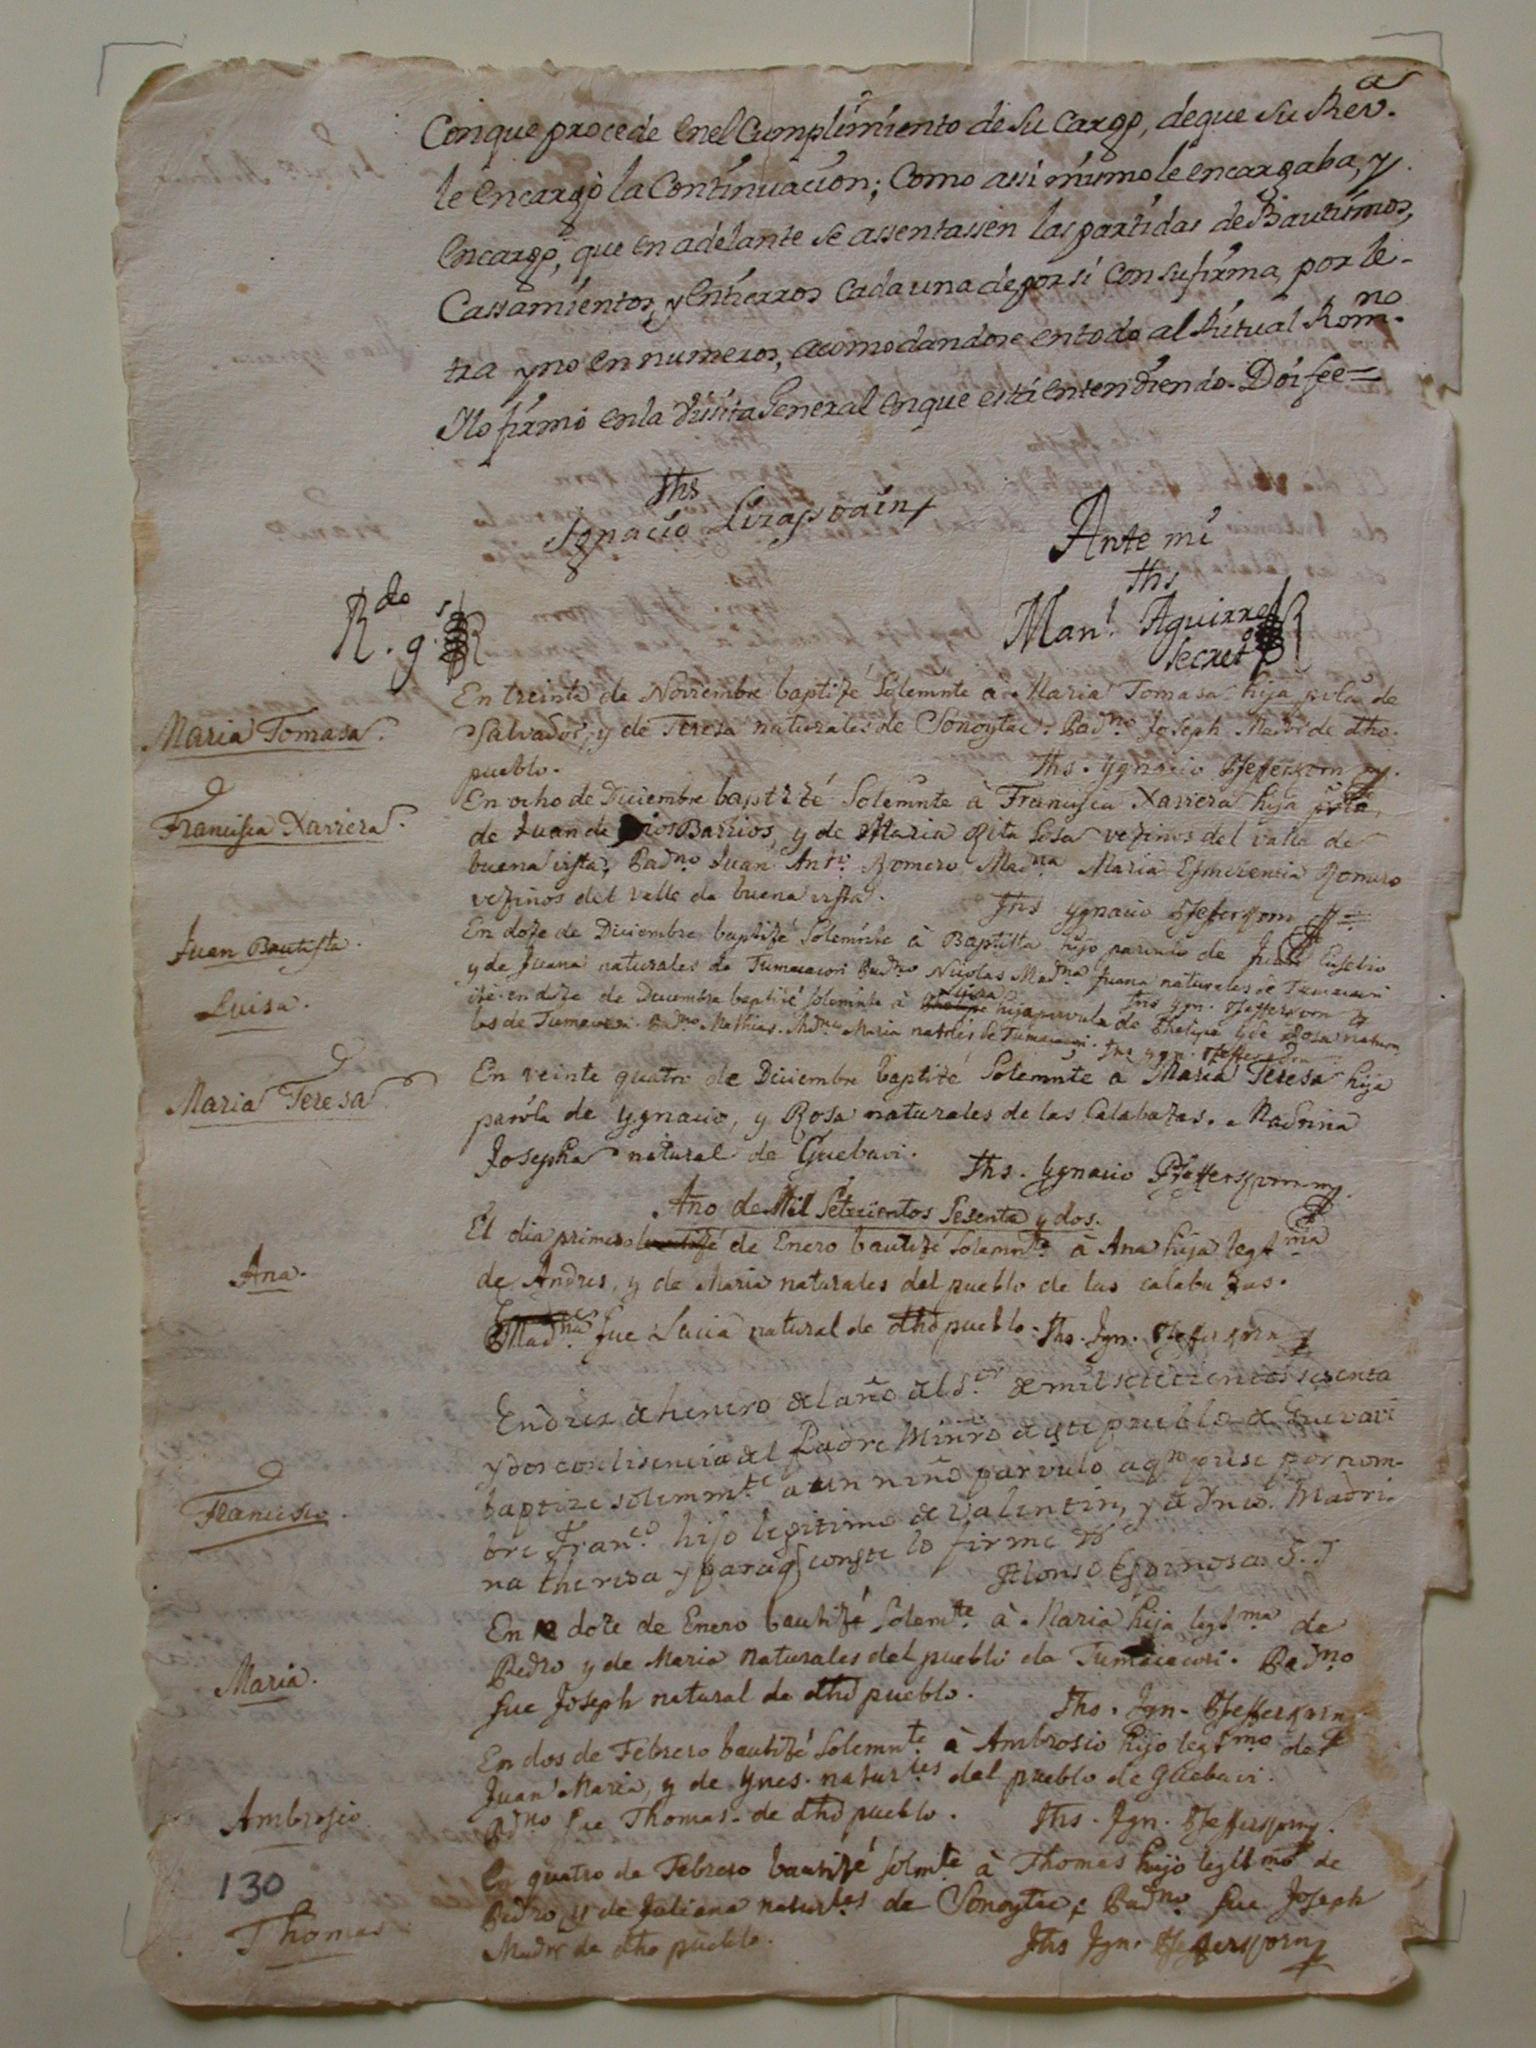 Conque procede enel Cumplimiento de su cargo, de que su Rev.ª
le encargò la Continuacion; como assi mismo le encargaba, y
encargò, que en adelante se assentassen las partidas de Bautismos,
Cassamientos, y entierros cada una de por si con su firma, por le-
tra y no en numeros, acomodandose entodo al Ritual Rom.no
Ylo firmò en la Visita General en que està entendiendo. Doi fee=
Jhs
Ignacio Lizassoain
Ante mi
Jhs
R.do g.s
Man.l Aguirre
Secret.o
En treinta de Noviembre baptizé solemnte à Maria Tomasa hija pvla de
Maria Tomasa.
Salvador, y de Teresa naturales de Sonoytac. Padno. Joseph Mador de dho.
pueblo.
Jhs. Ygnacio Pfefferkorn
En ocho de Diciembre baptizé Solemnte à Francisca Xaviera hija
Francisca Xaviera.
de Juan de Barrios, y de Maria Rita Sosa vezinos del valle de
buena vista, Padno. Juan Anto. Romero Madna Maria Esmerencia Romero
vezinos del valle de buena vista.
Jhs Ygnacio Pfefferkorn
Juan Bautista.
En doze de Diciembre baptizé Solemnte à Baptista hijo parvulo de Juan Eusebio
y de Juana naturales de Tumacacori Padno Nicolas Madna Juana naturales de Tumacacori
Jhs Ygn. Pfefferkorn
Luisa.
ite. en doze de Diciembre baptizé solemnte à Luisa hija parvula de Phelipe y de Rosa natura
les de Tumacacori. Padno Mathias. Madna Maria natrles de Tumacacori. Jhs Ygn. Pfefferkorn
En veinte quatro de Diciembre baptizé Solemnte a Maria Teresa hija
Maria Teresa
parvla de Ygnacio, y Rosa naturales de las Calabazas. Madrina
Josepha natural de Guebavi.
Jhs. Ygnacio Pfefferkorn
Año de Mil Setecientos Sesenta y dos.
El dia primero de Enero bautizé Solemnte à Ana hija legtma
Ana.
de Andres, y de Maria naturales del pueblo de las calabazas.
Madna. fue Lucia natural de dho pueblo. Jhs. Ign. Pfefferkorn
En diez de henero del año del S.or de mil setecientos sesenta
y dos con lisencia del Padre Minro de este pueblo de Guevavi
baptize solemmte. a un niño parvulo a qn puse por nom-
Francisco.
bre Fran.co hijo legitimo de Valentin, y de Ynes. Madri-
na theresa y para q conste lo firme
Alonso Espinosa S. J
En doze de Enero bautizé Solemte. à Maria hija legtma de
Maria.
Pedro y de Maria naturales del pueblo de Tumacacori. Padno
fue Joseph natural de dho pueblo.
Jhs. Ign. Pfefferkorn
En dos de Febrero bautizé Solemnte à Ambrosio hijo legtmo de
Juan Maria, y de Ynes. naturles del pueblo de Guebavi.
Ambrosio
Pdno fue Thomas. de dho pueblo.
Jhs. Ign. Pfefferkorn
130
En quatro de Febrero bautizé Solmte à Thomas hijo legitmo de
Pedro y de Juliana naturles de Sonoytac, Padno. fue Joseph
Thomas
Mador de dho pueblo.
Jhs Ign. Pfefferkorn